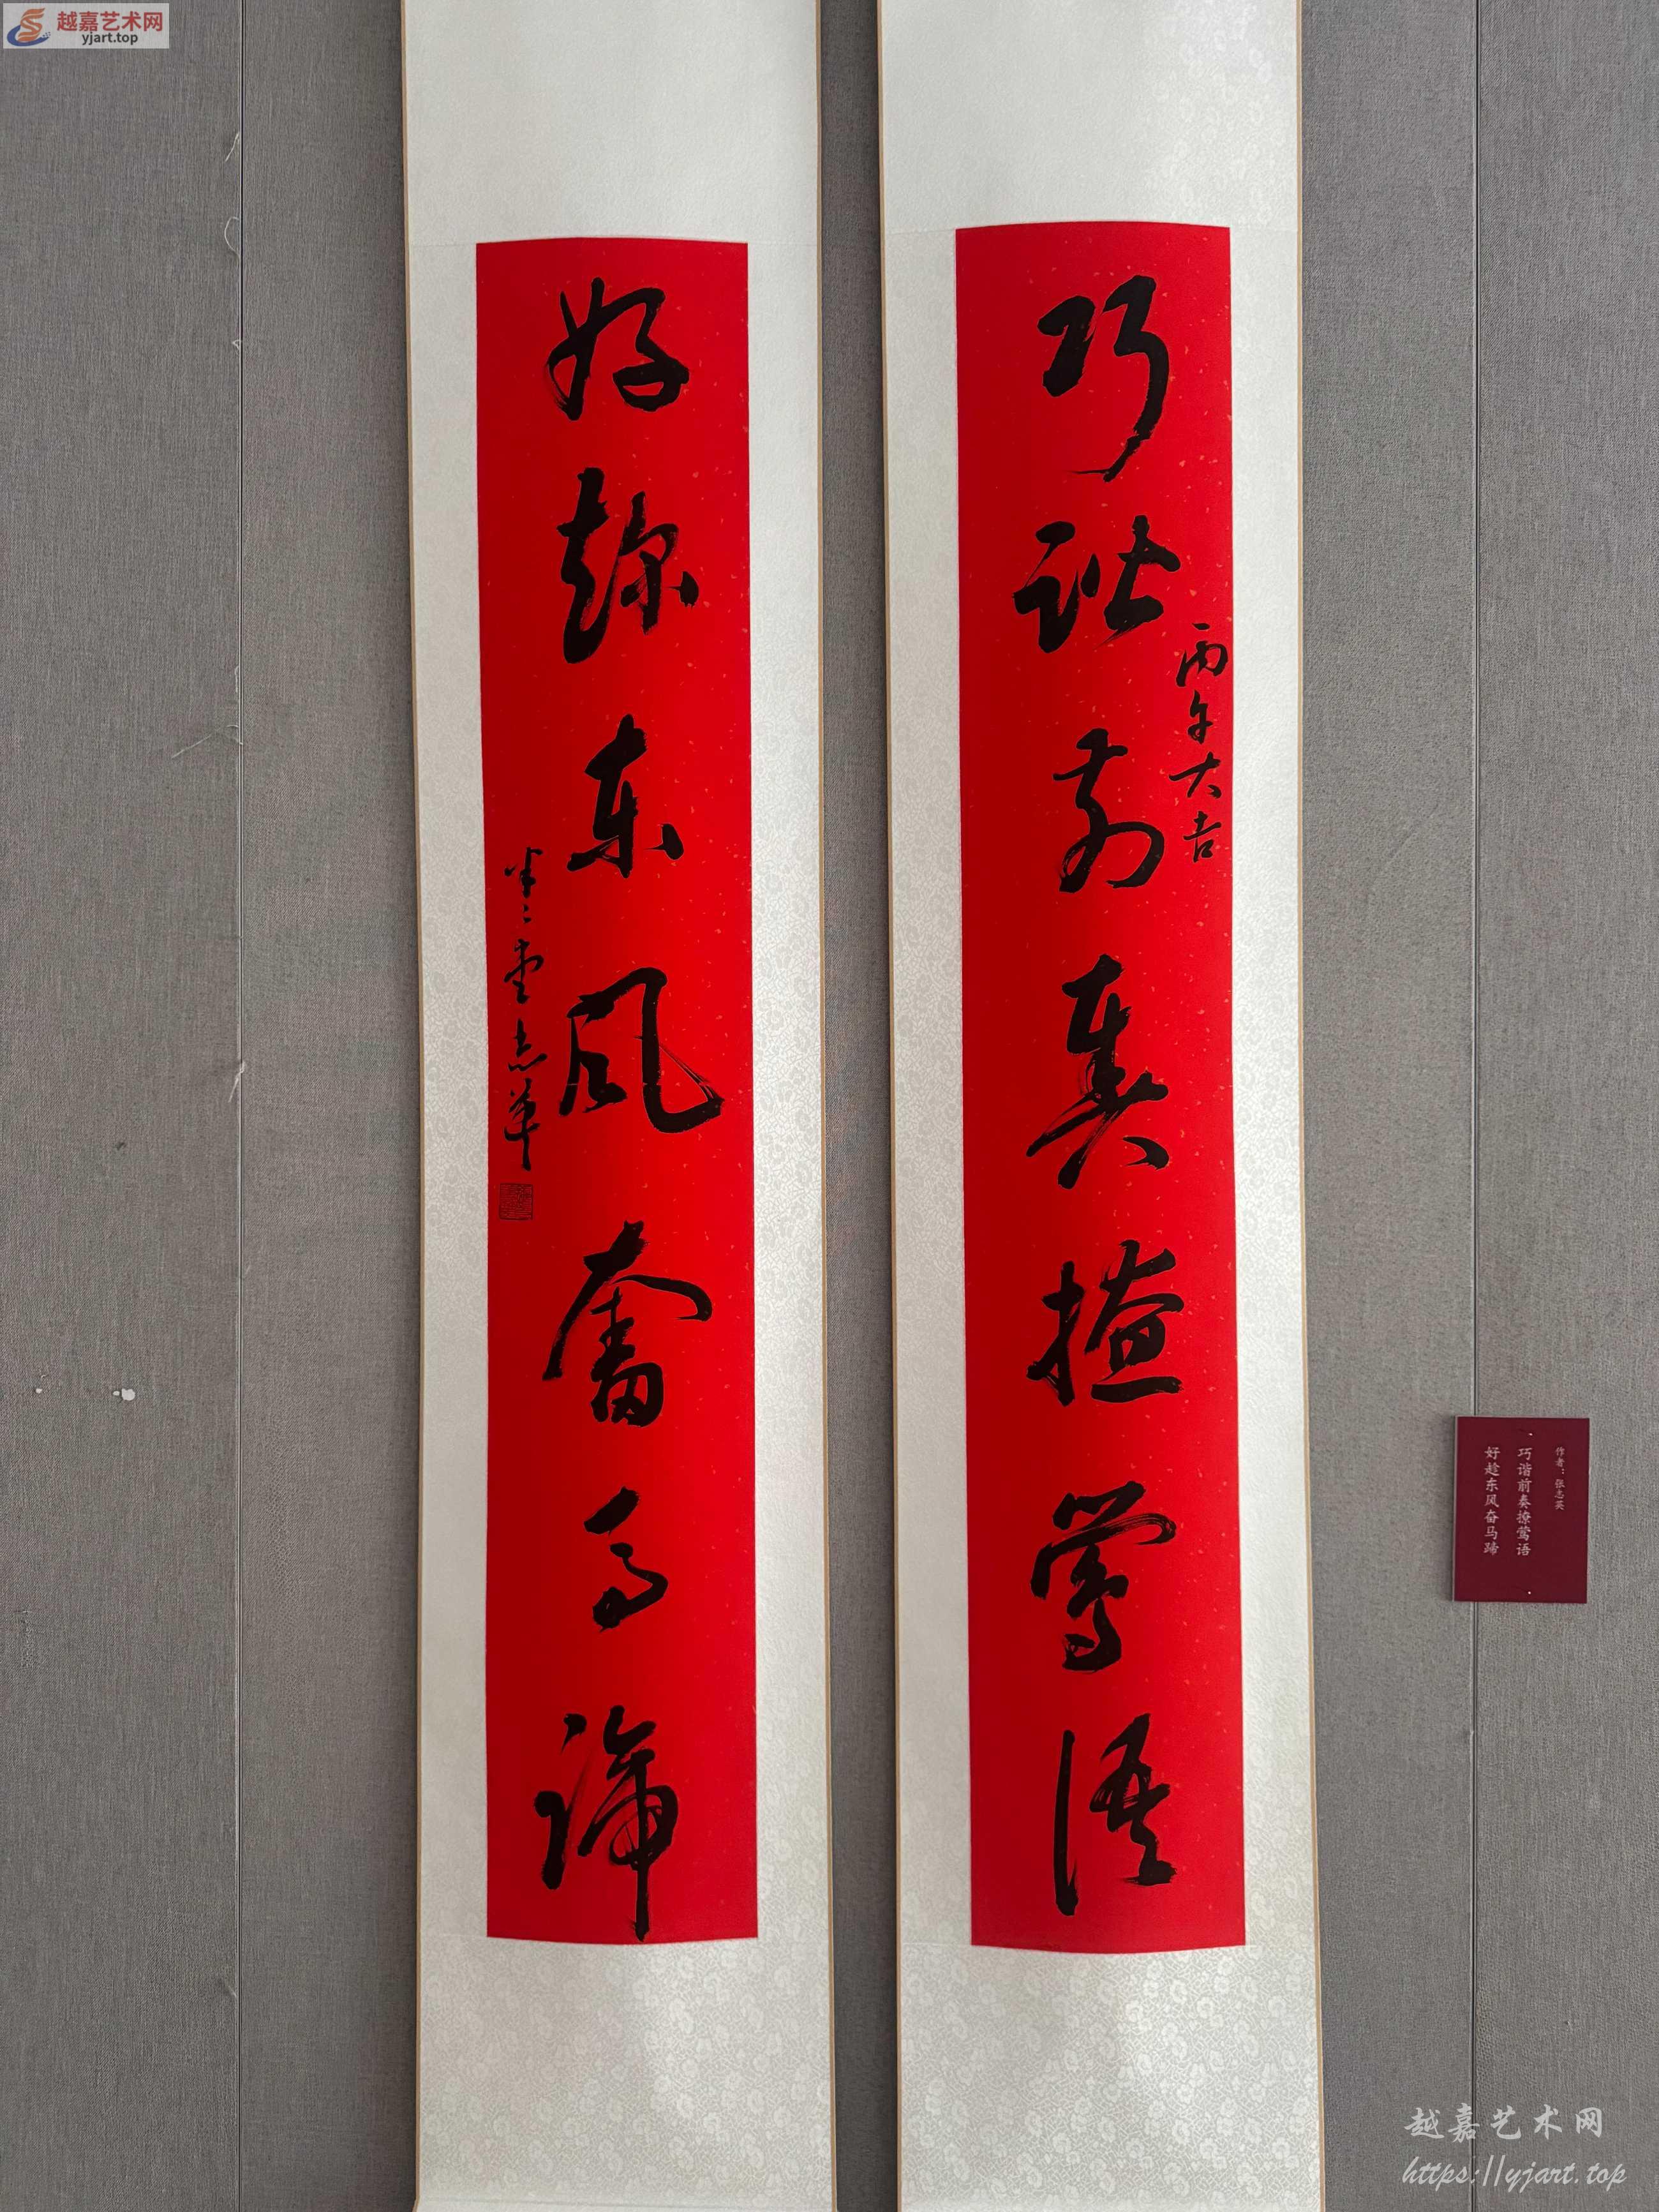 越嘉艺术网
yjart.top
巧谐前奏撩莺语
丙午大吉
好趁东风奋马蹄
作者：张志英
巧谐前奏撩莺语
好趁东风奋马蹄
越嘉艺术网
https://yjart.top